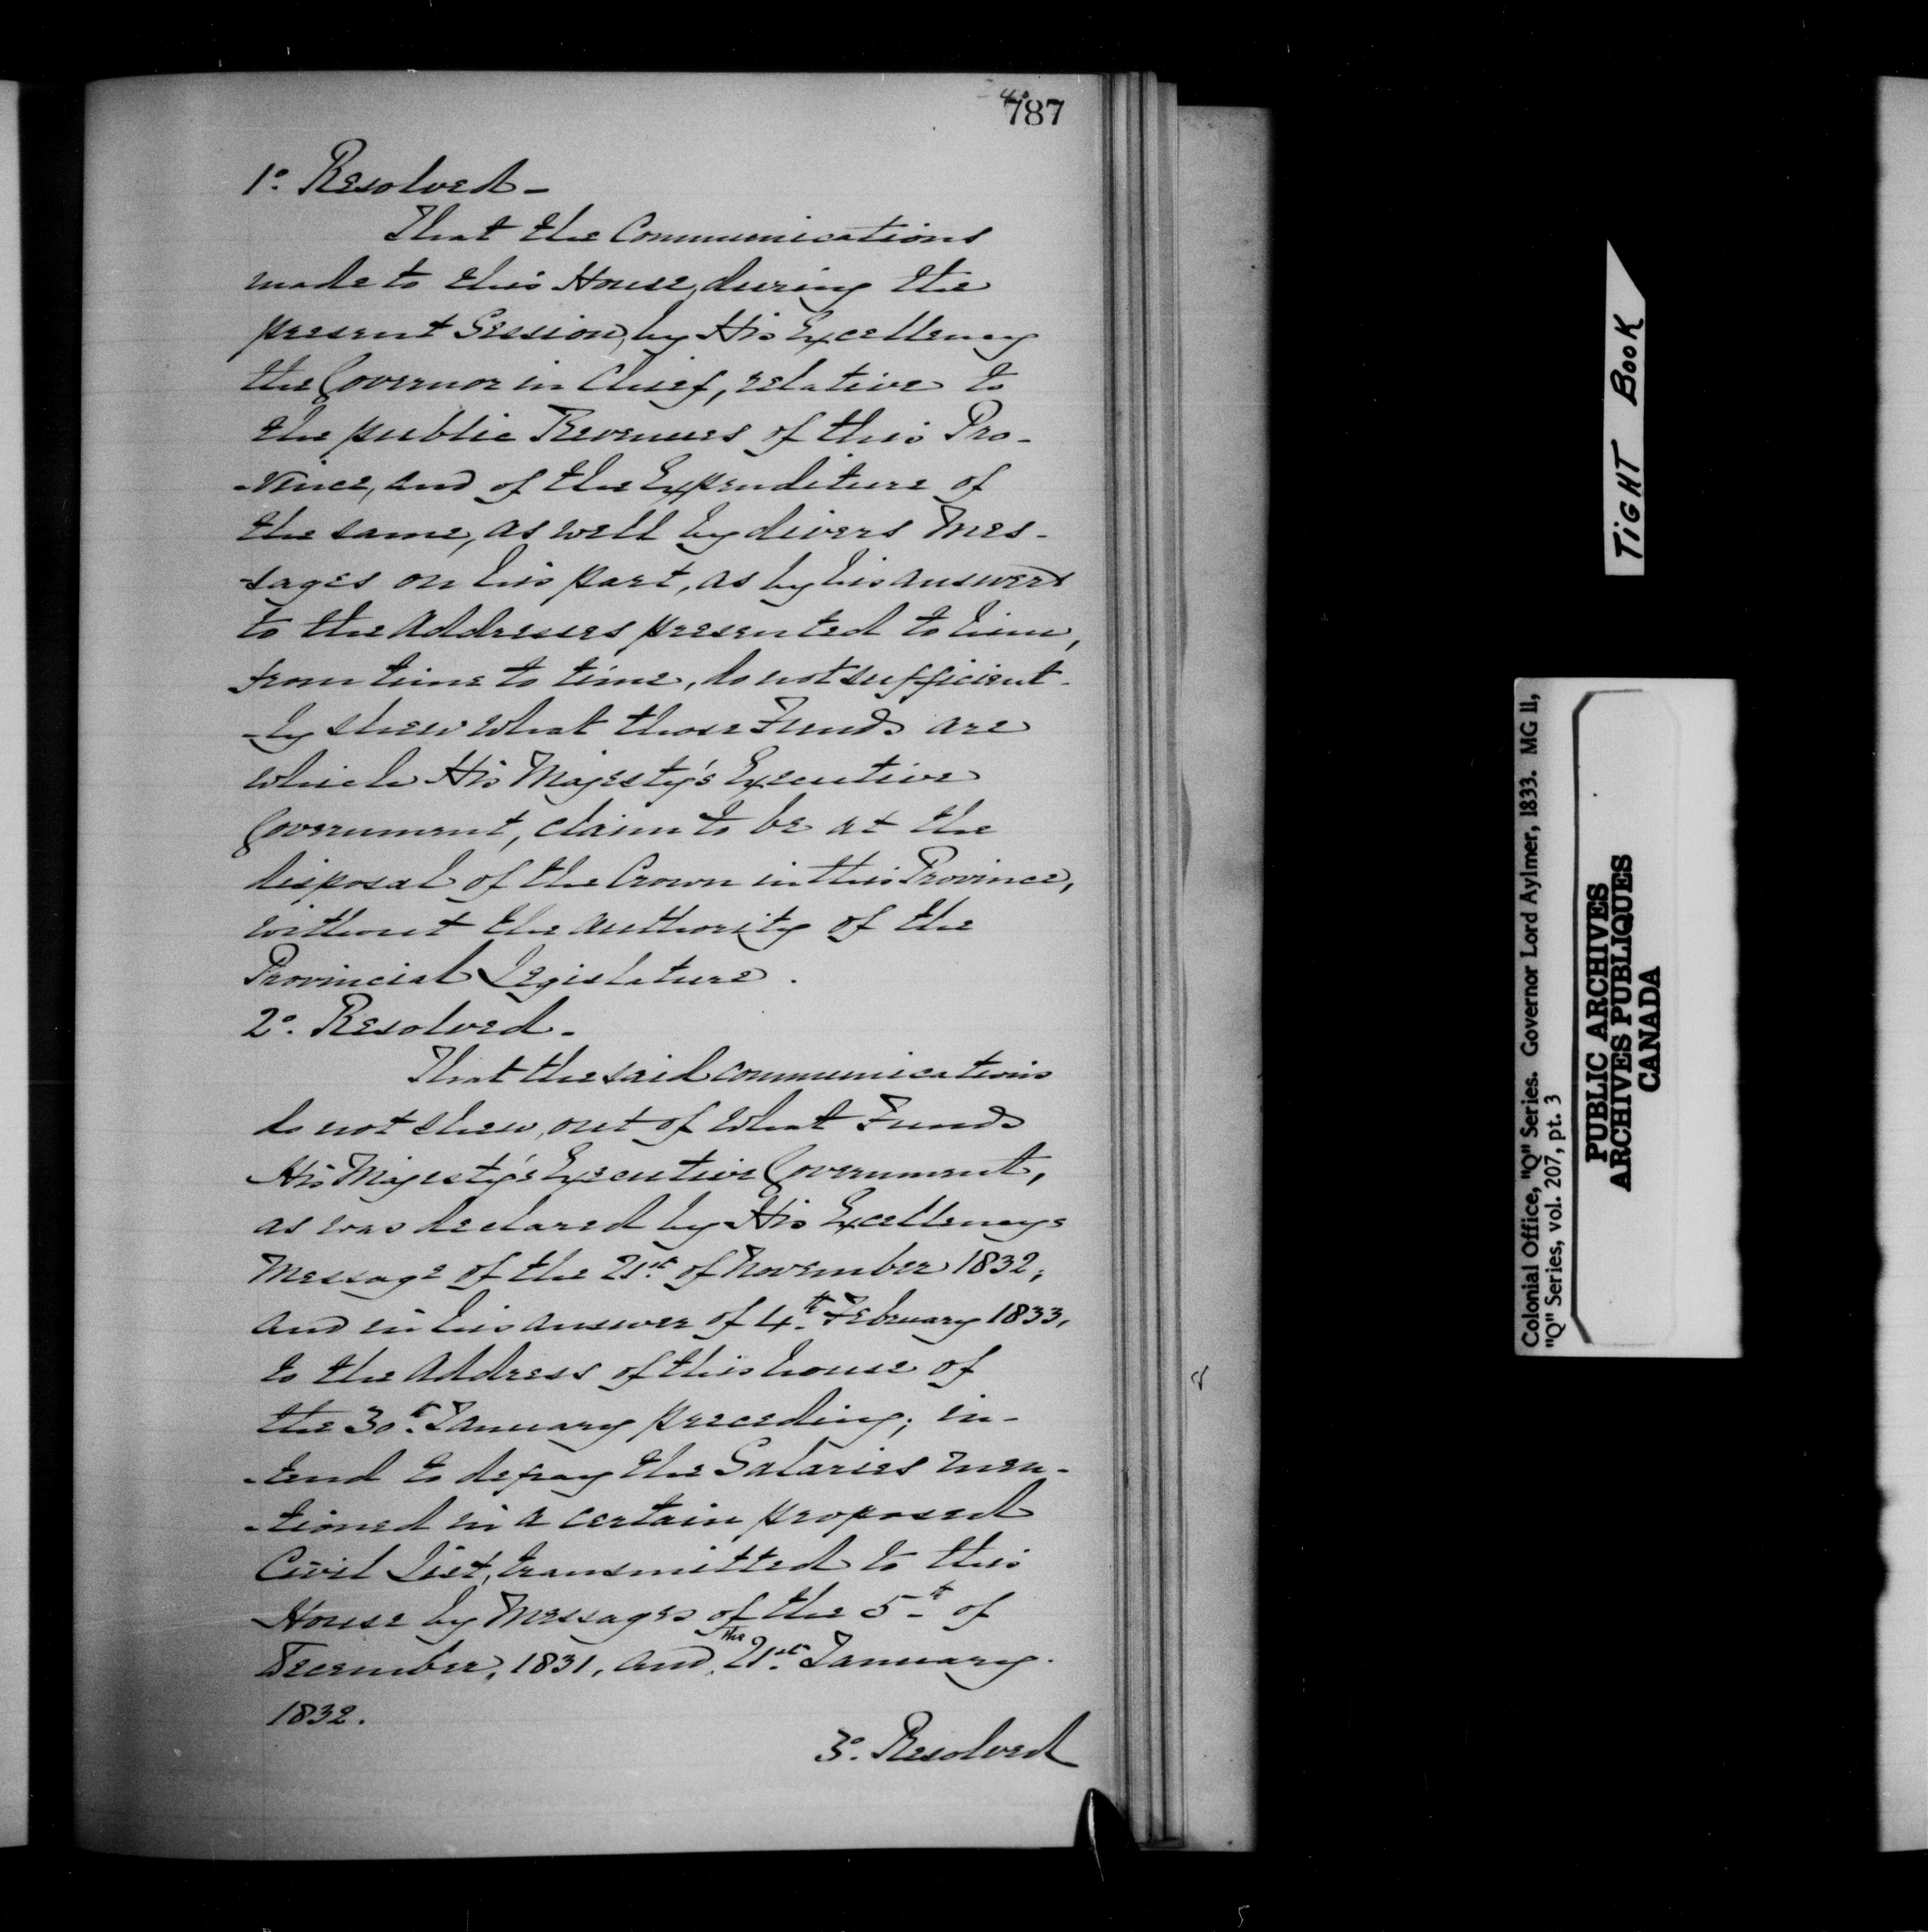 787
1º. Resolved –
That the Communications
made to this House, during the
present Session, by His Excellency
the Governor in Chief, relative to
the public Revenues of this Pro-
-vince, and of the Expenditure of
the same, as well by divers Mes-
-sages on his part, as by his answers
to the Addresses presented to him,
from time to time, do not sufficient-
-ly shew what those Funds are
which His Majesty's Executive
Government, claim to be at the
disposal of the Crown in this Province,
without the authority of the
Provincial Legislature.
2º. Resolved –
That the said communications
do not shew, out of what Funds
His Majesty's Executive Government,
as was declared by His Excellencys
Message of the 21st. of November 1832,
and in his answer of 4th. February 1833,
to the Address of this house of
the 30th. January preceding; in-
-tend to defray the Salaries men-
-tioned in a certain proposed
Civil List, transmitted to this
House by Messages of the 5th of
December, 1831, and the 21st. January.
1832.
3º. Resolved
TIGHT BOOK
Colonial Office, "Q" Series. Governor Lord Aylmer, 1833. MG 11,
"Q" Series, vol. 207, pt. 3
PUBLIC ARCHIVES
ARCHIVES PUBLIQUES
CANADA